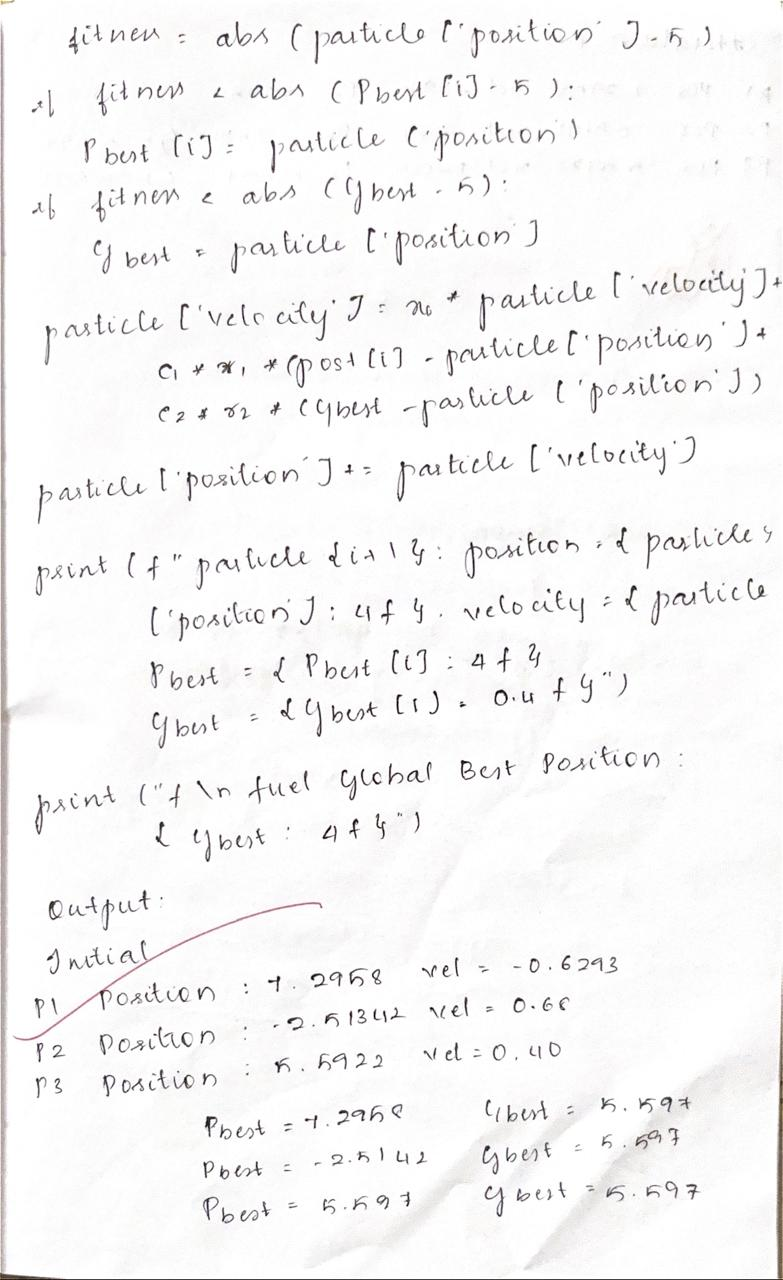 fitness = abs (particle ['position'] - 5)
if fitness < abs (Pbest [i] - 5):
Pbest [i] = particle ('position')
if fitness < abs (gbest - 5):
gbest = particle ['position']
particle ['velocity'] = * particle ['velocity'] +
c1 * r1 * (post [i] - particle ['position'] +
c2 * r2 * (gbest - particle ['position'])
particle ['position'] += particle ['velocity']
print (f" particle {i+1}: position = { particle
['position']: 4f}. velocity = { particle
Pbest = { Pbest [i] : 4f}
gbest = {gbest [i] = 0.4 f}")
print ("f \n fuel Global Best Position :
{ gbest : 4f}")
Output:
Initial
P1 Position : 7.2958 vel = -0.6293
P2 Position : -2.51342 vel = 0.68
P3 Position : 5.5922 vel = 0.40
Pbest = 7.2958 Gbest = 5.597
Pbest = -2.5142 gbest = 5.597
Pbest = 5.597 gbest = 5.597